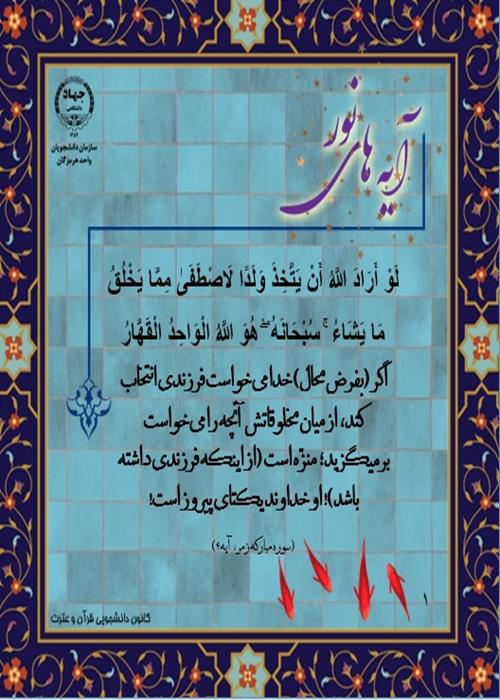 جهاد
دانشگاهی
۱۳۵۹
سازمان دانشجویان
واحد هرمزگان
آیه های نور
لَوْ أَرَادَ اللَّهُ أَنْ يَتَّخِذَ وَلَدًا لَاصْطَفَىٰ مِمَّا يَخْلُقُ
مَا يَشَاءُ ۚ سُبْحَانَهُ ۖ هُوَ اللَّهُ الْوَاحِدُ الْقَهَّارُ
اگر (بفرض محال) خدا می خواست فرزندی انتخاب
کند، از میان مخلوقاتش آنچه را می خواست
برمیگزید؛ منزه است (از اینکه فرزندی داشته
باشد)! او خداوند یکتای پیروز است!
(سوره مبارکه زمر، آیه۴)
۱
کانون دانشجویی قرآن و عترت